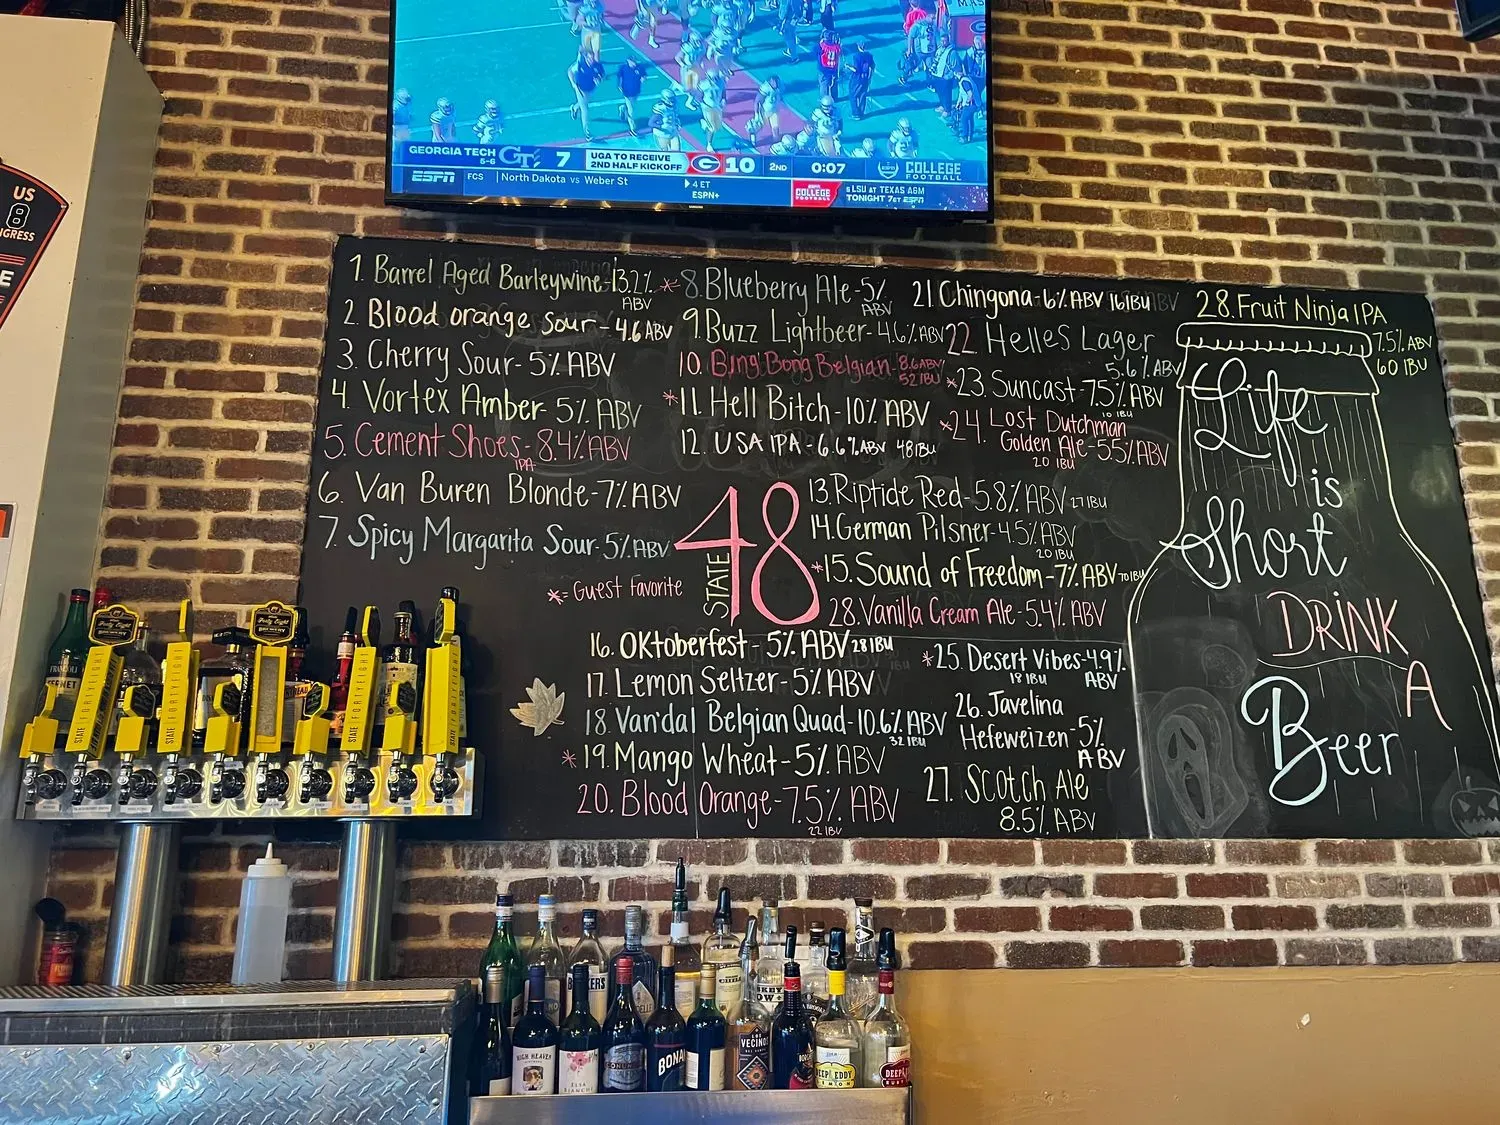 GEORGIA TECH
5-6
GT
7
UGA TO RECEIVE
2ND HALF KICKOFF
G
10
2ND
0:07
COLLEGE
FOOTBALL
ESPN
FCS
North Dakota vs Weber St
4 ET
ESPN+
COLLEGE
FOOTBALL
LSU AT TEXAS A&M
TONIGHT 7ET ESPN
US
8
1. Barrel Aged Barleywine-13.2%
ABV
2. Blood orange sour - 4.6 ABV
3. Cherry Sour- 5% ABV
4. Vortex Amber- 5% ABV
5. Cement Shoes- 8.4% ABV
IPA
6. Van Buren Blonde-7% ABV
7. Spicy Margarita Sour-5% ABV
*= Guest Favorite
* 8. Blueberry Ale-5%
ABV
9. Buzz Lightbeer-4.6% ABV
10. Bing Bong Belgian-8.6 ABV
52 IBU
*11. Hell Bitch-10% ABV
12. USA IPA-6.6% ABV 48 IBU
STATE 48
13. Riptide Red-5.8% ABV 27 IBU
14. German Pilsner-4.5% ABV
20 IBU
*15. Sound of Freedom-7% ABV 70 IBU
28. Vanilla Cream Ale-5.4% ABV
16. Oktoberfest-5% ABV 28 IBU
17. Lemon Seltzer-5% ABV
18. Vandal Belgian Quad-10.6% ABV
32 IBU
*19. Mango Wheat-5% ABV
20. Blood Orange-7.5% ABV
22 IBU
21 Chingona-6% ABV 16 IBU
22 Helles Lager
5.6% ABV
*23. Suncast-7.5% ABV
16 IBU
*24. Lost Dutchman
Golden Ale-5.5% ABV
20 IBU
*25. Desert Vibes-4.9%
18 IBU ABV
26. Javelina
Hefeweizen-5%
ABV
27. Scotch Ale
8.5% ABV
28. Fruit Ninja IPA
7.5% ABV
60 IBU
Life
is
Short
DRINK
A
Beer
Forty Eight
STATE FORTY EIGHT
STATE FORTY EIGHT
STATE FORTY EIGHT
STATE FORTY EIGHT
HIGH HEAVEN
ELSA
BIANCHI
BONA
LOS
VECINOS
DEEP EDDY
LEMON
DEEP EDDY
RUBY